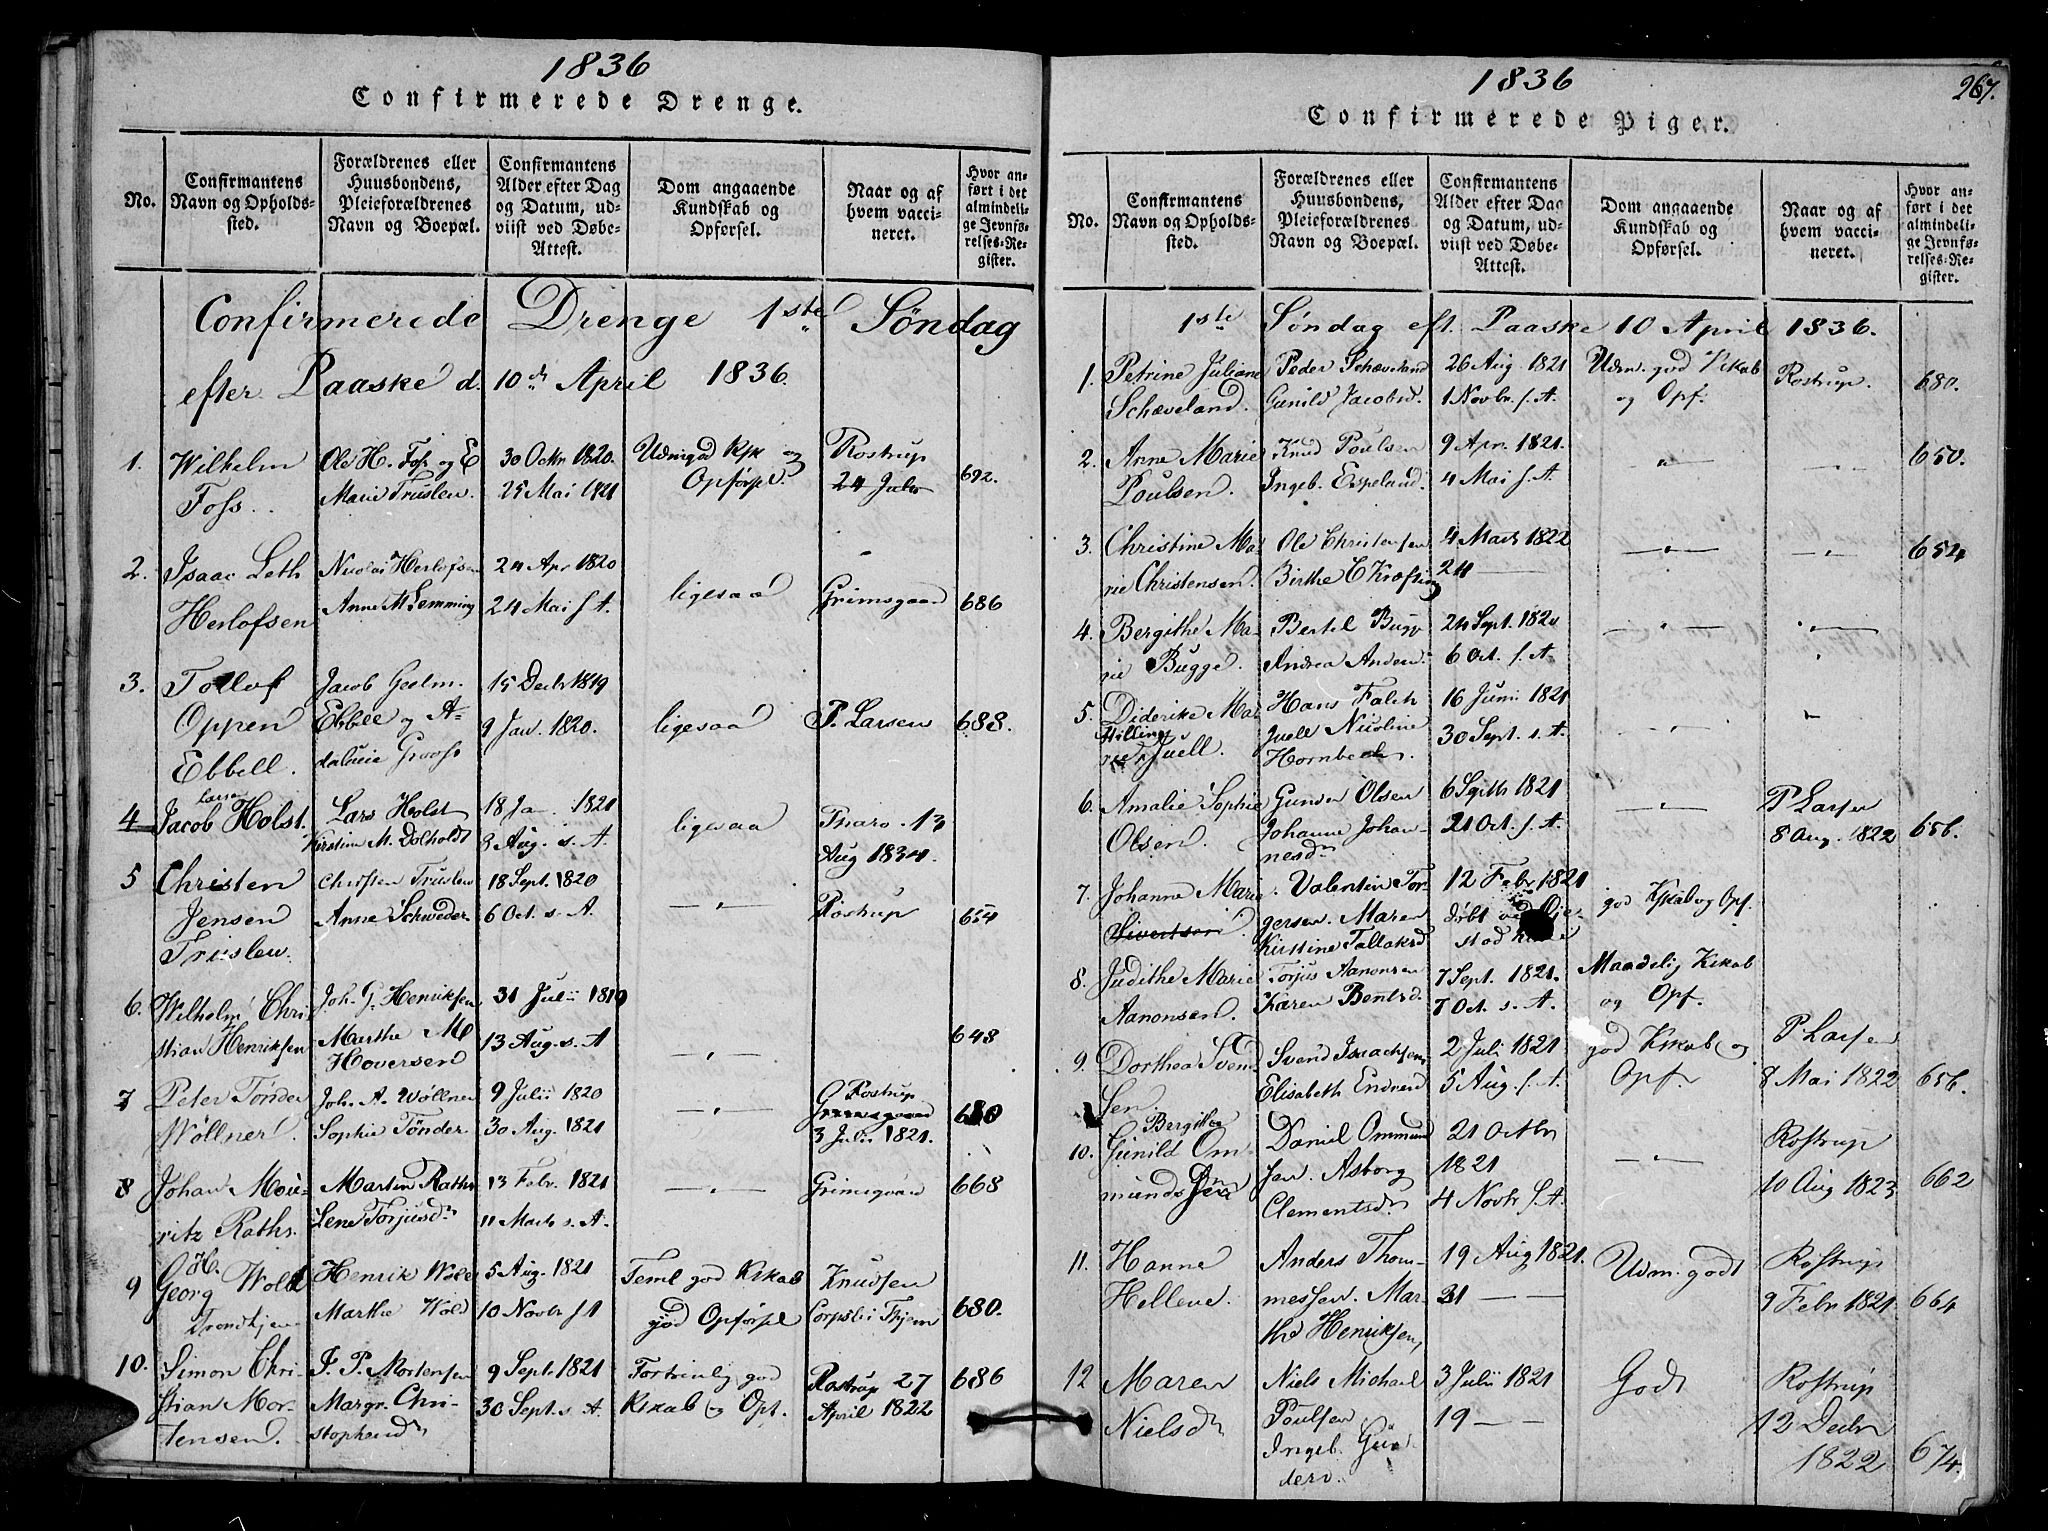 1836
Confirmerede Drenge.
No.
Confirmantens
Navn og Opholds-
sted.
Forældrenes eller
Huusbondens,
Pleieforældrenes
Navn og Boepæl.
Confirmantens
Alder efter Dag
og Datum, ud-
viist ved Døbe-
Attest.
Dom angaaende
Kundskab og
Opførsel.
Naar og af
hvem vacci-
neret.
Hvor an-
ført i det
almindeli-
ge Jevnfø-
relses-Re-
gister.
Confirmerede Drenge 1ste Söndag
efter Paaske d. 10de April 1836.
1. Wilhelm
Foss.
Ole H. Foss og E
Marie Truslew.
30 Octbr 1820.
25 Mai 1821
Udm god Kjk og
Opførsel.
Rostrup
24 Julii
692.
2. Isaac Leth
Herlofsen
Nicolai Herlofsen
Anne M Lemming
24 Apr 1820
24 Mai s. A.
ligesaa
Grimsgaard
686
3. Tollof
Oppen
Ebbell.
Jacob Geelm.
Ebbell og A-
Grooss
15 Decbr 1819
9 Jan. 1820.
ligesaa
P. Larsen
688.
4 Jacob Larsen Holst.
Lars Holst
Kirstine M. Dolholdt
18 Jan. 1821
3 Aug. s. A.
ligesaa
Tharo. 13
Aug 1834.
5 Christen
Jensen
Truslew.
Christen Truslew
Anne Schweder
18 Sept. 1820
6 Oct. s. A.
— " —
Rostrup
654
6. Wilhelm Chri
stian Henriksen
Joh. G. Henriksen
Marthe M
Hoversen
31 Julii 1819
13 Aug. s. A
— " —
648
7 Peter Tönder
Wöllner.
Joh. A. Wöllner
Sophie Tönder.
9 Julii 1820
30 Aug. 1821
— " —
Rostrup
3 Julii 1821.
680
8 Johan Mou-
ritz Raths.
Martin Raths
Lene Torjusdr
13 Febr. 1821
11 Marts s. A.
— " —
Grimsgaard
668
9 Georg H. Wold
Trondhjem
Henrik Wold
Marthe Wold
5 Aug. 1821
10 Novbr s A
Teml god Kskab
god Opførsel
Knudsen
Corpslæ Thjem
680.
10. Simon Chri-
stian Mor-
tensen.
J. P. Mortensen
Margr. Chri-
stophersdr
9 Sept. 1821
30 Sept. s. A.
Fortrinlig god
Kskab og Opf.
Rostrup 27
April 1822
686
1836
267.
Confirmerede Piger.
No.
Confirmantens
Navn og Opholds-
sted.
Forældrenes eller
Huusbondens,
Pleieforældrenes
Navn og Boepæl.
Confirmantens
Alder efter Dag
og Datum, ud-
viist ved Døbe-
Attest.
Dom angaaende
Kundskab og
Opførsel.
Naar og af
hvem vacci-
neret.
Hvor an-
ført i det
almindeli-
ge Jevnfø-
relses-Re-
gister.
1ste Söndag eft. Paaske 10 April 1836.
1. Petrine Juliane
Schæveland.
Peder Schæveland
Gunild Jacobsd.
26 Aug. 1821
1 Novbr. s. A.
Udm. god Kskab
og Opf.
Rostrup.
680.
2. Anne Marie
Poulsen.
Knud Poulsen
Ingeb. Espeland.
9 Apr. 1821.
4 Mai s. A.
— " —
— " —
650.
3. Christine Ma
rie Christensen.
Ole Christensen
Birthe C Krøfting
4 Marts 1822
24 —
— " —
— " —
654
4. Bergithe Ma-
rie Bugge.
Bertel Bugge
Andrea Anders.
24 Sept. 1820
6 Oct. s. A.
— " —
— " —
5. Diderike Ma
rie Juell.
Hans Falch
Juell Nicoline
Hornbech.
16 Juni 1821
30 Sept. s. A.
— " —
"
6. Amalie Sophie
Olsen.
Gunder Olsen
Johanne Johan-
nesdr
6 Septbr 1821
21 Oct. s. A.
— " —
P Larsen
8 Aug. 1822
656.
7. Johanne Marie
Sivertsen.
Valentin Tor-
gersen. Maren
Kirstine Tallaksd
12 Febr. 1821
døbt ved Øje-
stad Kirke
god Kskab og Opf.
8. Judithe Marie
Aanonsen.
Torjus Aanonsen
Karen Bentsd.
7 Sept. 1821.
7 Oct. s. A.
Maadelig Kskab
og Opf.
9. Dorthea Svend
sen.
Svend Isaachsen,
Elisabeth Endresd
2 Juli 1821
5 Aug. s. A.
god Kskab og
Opf.
P Larsen
8 Mai 1822
656.
10. Gunild Bergithe Om-
mundsdr
Daniel Ommund
sen. Asborg
Clementsdr
21 Octbr
1821
4 Novbr. s. A.
— " —
Rostrup
10 Aug 1823
662
11. Hanne
Hellene.
Anders Thom-
messen. Mar-
the Henriksen,
19 Aug 1821.
31 — —
Udm. godt
Rostrup
9 Febr 1821.
664
12 Maren
Nielsdr
Niels Michael
Poulsen
Ingeb. Gun
dersd.
3 Julii 1821
19 —
Godt
Rostrup
12 Decbr
1822
674.